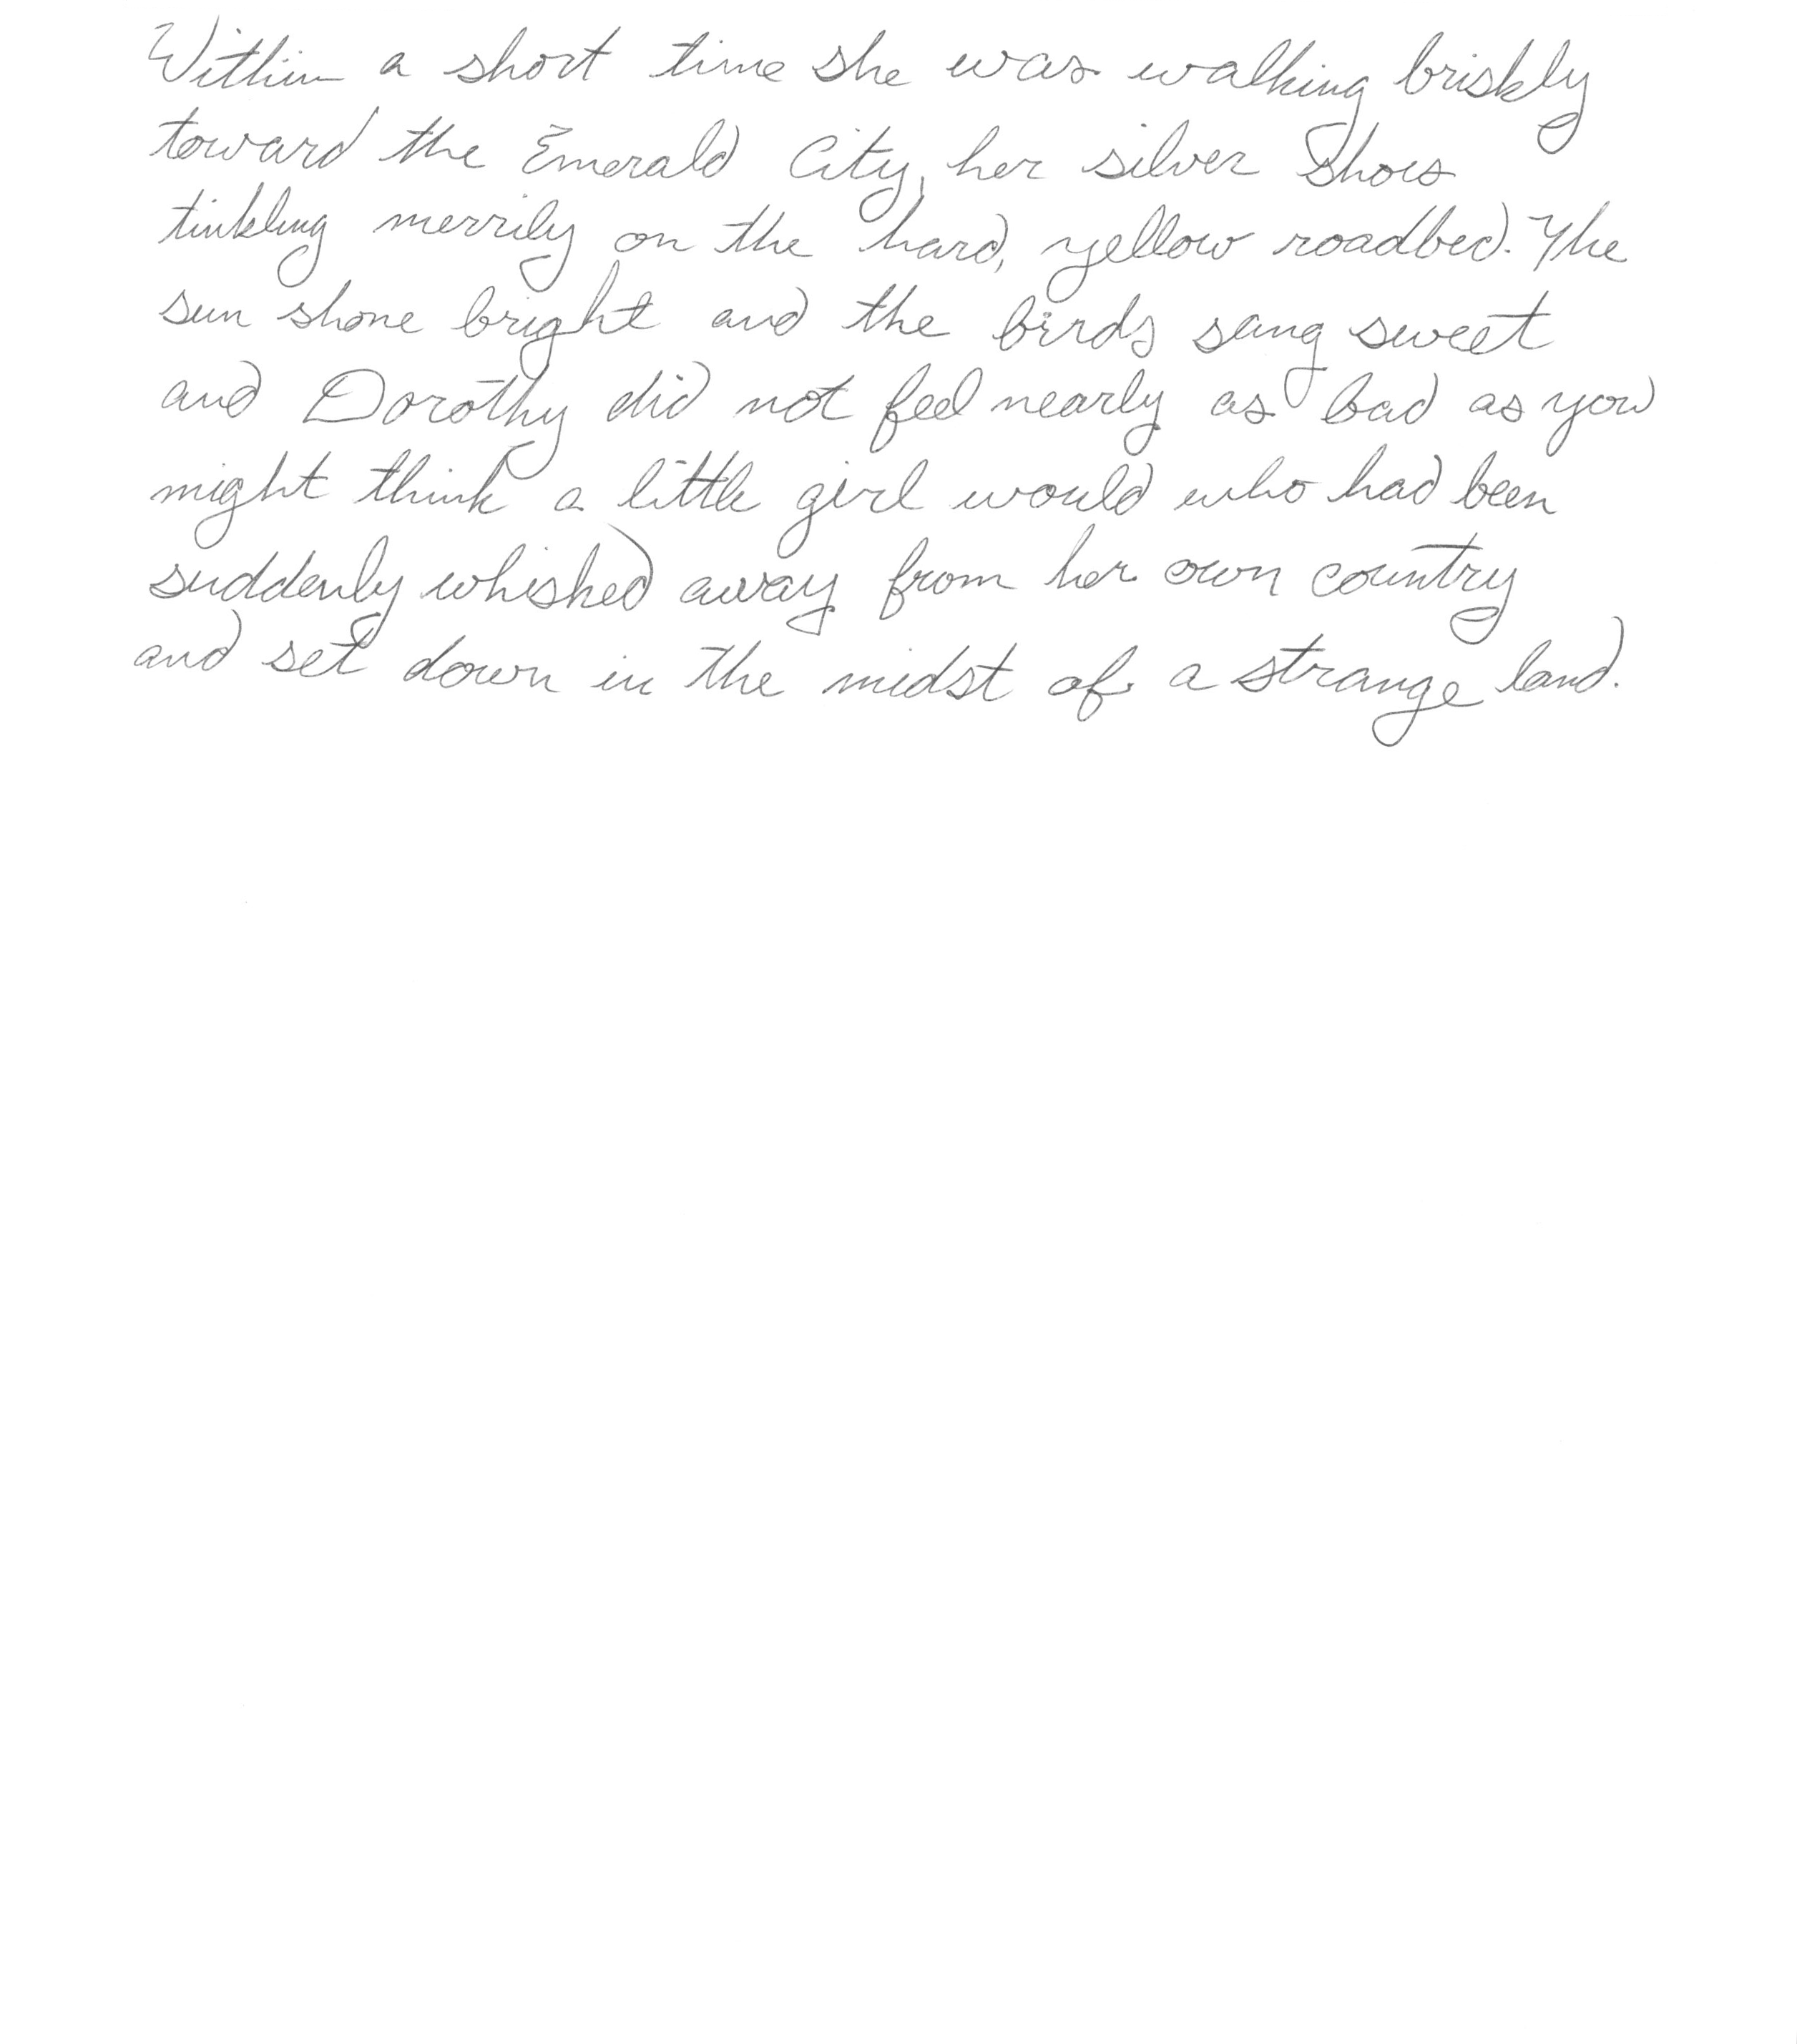 Within a short time she was walking briskly
toward the Emerald City, her silver Shoes
tinkling merrily on the hard, yellow roadbed. The
sun shone bright and the birds sang sweet
and Dorothy did not feel nearly as bad as you
might think a little girl would who had been
suddenly whisked away from her own country
and set down in the midst of a strange land.